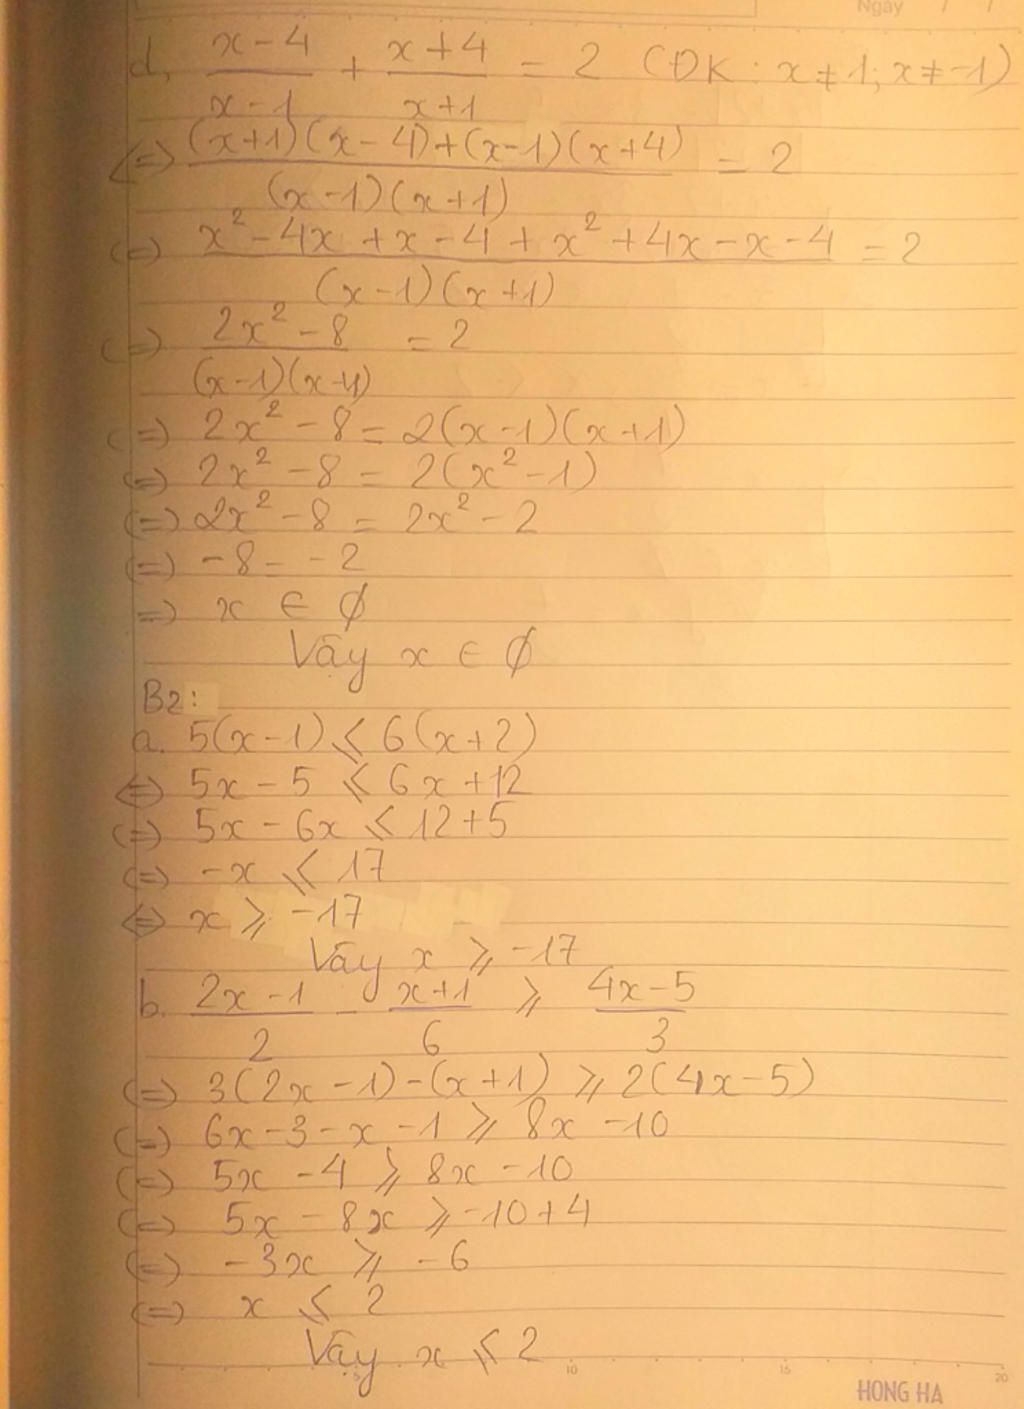 Ngày / /
d, (x-4)/(x-1) + (x+4)/(x+1) = 2 (ĐK : x ≠ 1; x ≠ -1)
<=> ((x+1)(x-4)+(x-1)(x+4))/((x-1)(x+1)) = 2
<=> (x² - 4x + x - 4 + x² + 4x - x - 4)/((x-1)(x+1)) = 2
<=> (2x² - 8)/((x-1)(x+1)) = 2
<=> 2x² - 8 = 2(x-1)(x+1)
<=> 2x² - 8 = 2(x² - 1)
<=> 2x² - 8 = 2x² - 2
<=> -8 = -2
=> x ∈ ∅
Vậy x ∈ ∅
B2:
a. 5(x-1) ⩽ 6(x+2)
<=> 5x - 5 ⩽ 6x + 12
<=> 5x - 6x ⩽ 12 + 5
<=> -x ⩽ 17
<=> x ⩾ -17
Vậy x ⩾ -17
b. (2x-1)/2 - (x+1)/6 ⩾ (4x-5)/3
<=> 3(2x-1)-(x+1) ⩾ 2(4x-5)
<=> 6x-3-x-1 ⩾ 8x-10
<=> 5x - 4 ⩾ 8x - 10
<=> 5x - 8x ⩾ -10+4
<=> -3x ⩾ -6
<=> x ⩽ 2
Vậy x ⩽ 2
5 10 15 20
HONG HA